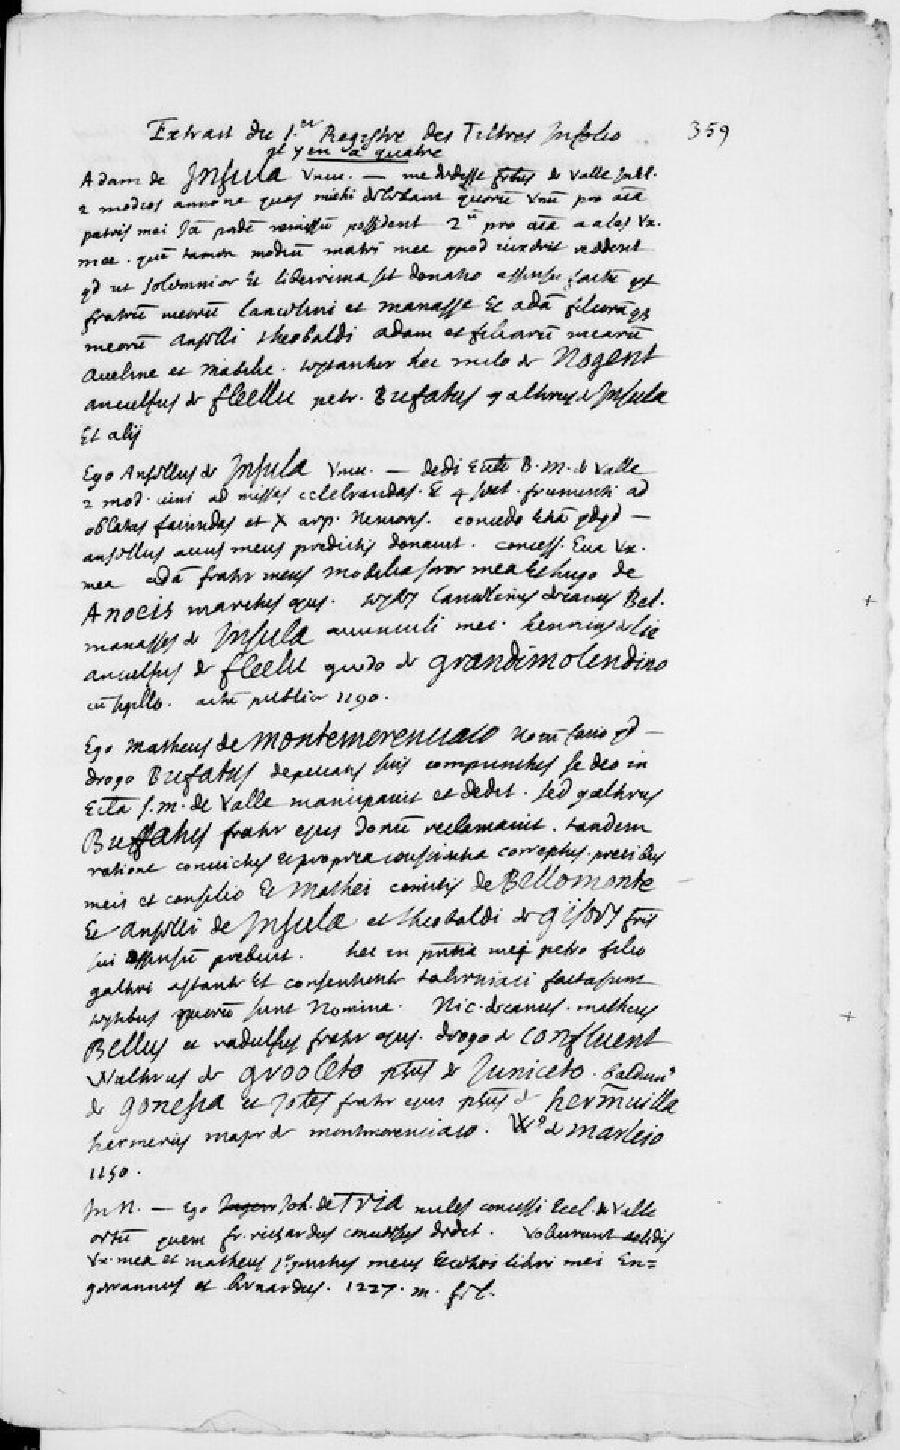 Extrait du 1.er Registre des Tiltres Infolio 359
il y en a quatre
Adam de Insula vnu. — me dedisse frībus de Valle Intl.
2 modios annone quos michi debebant quorū vnū pro aīa
patris mei Jā pridē remissū possident 2ū pro aīa aales Vx.
mee. quē tamen modiū matri mee quod vixerit reddent
qd ut solemnior et liberrima sit donatio assensu factū est
fratrū meorū Lancelini et manasse Et adā filiorūqz
meorū Ansolli theobaldi adam et filiarū mearū
Aveline et Mabilie. testantur hec milo de Nogent
anculfus de fleellu petr. Bufatus galterus de Insula
Et alij
Ego Ansollus de Insula vnu. — dedi Eccle B. M. de Valle
2 mod. vini ad missas celebrandas. Et 4 sext. frumenti ad
oblatas faciendas et X arp. Nemoris. concedo etiā qdqd —
ansollus auus meus predictis donauit. concess. Eua Vx.
mea adā frater meus mabilia soror mea et hugo de
Anocis maritus ejus. testibus Lancelinus decanus Bel.
manasses de Insula auunculi mei. henricus de
anculfus de fleellu guido de grandimolendino
cū sigillo. actū publice 1190.
Ego Matheus de montemorenciaco notū facio qd —
drogo Bufatus depeccatis suis compunctus se deo in
Eccla S. M. de Valle mancipauit et dedit. sed galterus
Buffatus frater ejus donū reclamauit. tandem
ratione conuictus et propria conscientia correptus. precibus
meis et consilio et Mathei comitis de Bellomonte
Et ansolli de Insula et theobaldi de gisors fris
sui assensū prebuit. hec in pntia mea petro filio
galteri astante et consentiente taberniaci facta sunt
testibus quorū sunt Nomina. Nic. decanus. matheus
Bellus et radulfus frater ejus. drogo de Confluent
Walterus de grooleto ptus de Juniceto. balduin9
de gonessa et Jotes frater ejus ptus de hermuilla
hermerius major de montmorenciaco. de marleio
1150.
In N. — Ego Joh. de Tria miles concessi Eccl. de Valle
ortū quem fr. richardus conuersus dedit. Voluerunt
Vx. mea et matheus meus et ceteri liberi mei En=
gerrannus et bernardus. 1227. m. feb.